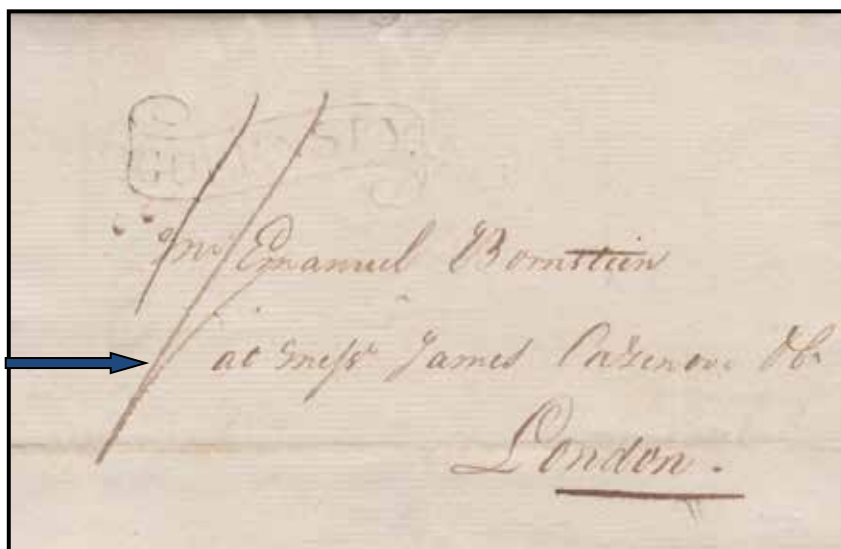 GUERNSEY
Mr Emanuel Bornstein
at Messrs James Cazenove & Co
London.